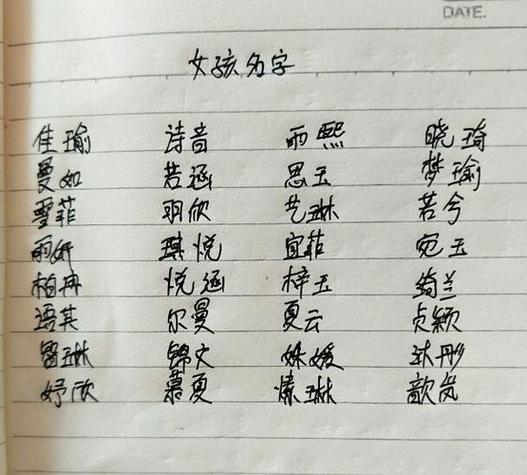 DATE.
女孩名字
佳瑜 诗音 雨熙 晓琦
曼如 若涵 思玉 梦瑜
雪菲 羽欣 艺琳 若兮
雨妍 琪悦 宜菲 宛玉
柏冉 悦涵 梓玉 绮兰
语其 尔曼 夏云 贞颖
锦文 姝媛
妤欣 慕夏 歆岚